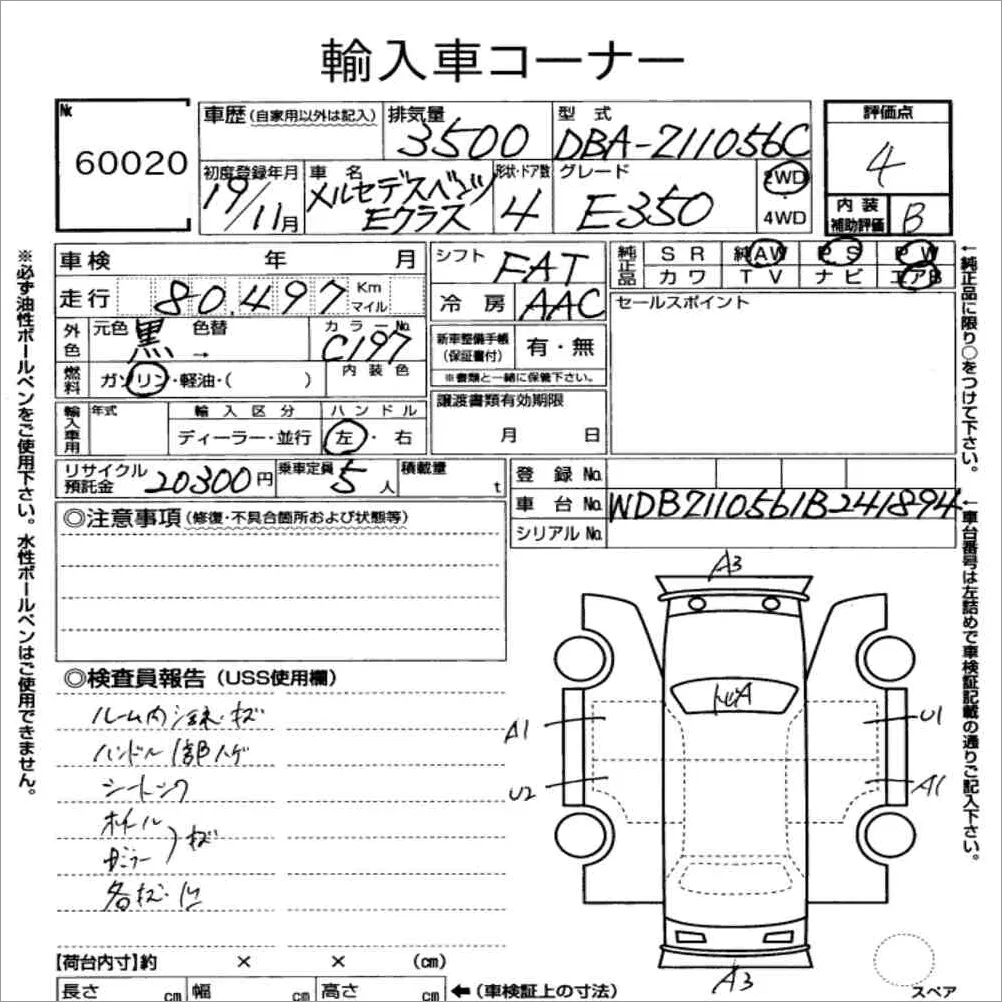 輸入車コーナー
№ 60020
車歴(自家用以外は記入) 排気量 3500 型式 DBA-211056C
評価点 4
初度登録年月 19/11月 車名 メルセデスベンツ Eクラス 形状・ドア数 4 グレード E350 2WD 4WD
内装補助評価 B
車検 年 月
シフト FAT
純正品 SR 純AW PS PW
カワ TV ナビ エアB
走行 80,497 Km マイル
冷房 AAC
セールスポイント
外色 元色 黒 色替 → カラーNo. C197
新車整備手帳(保証書付) 有・無
内装色
※書類と一緒に保管下さい。
燃料 ガソリン・軽油・( )
譲渡書類有効期限
月 日
輸入車用 年式 輸入区分 ハンドル
ディーラー・並行 左・右
リサイクル預託金 20300円 乗車定員 5人 積載量 t
登録 No.
車台 No. WDB2110561B241894
シリアル No.
◎注意事項(修復・不具合箇所および状態等)
◎検査員報告(USS使用欄)
ハンドル1部ハゲ
ホイール
ミラー
キズ
A3
トビA
A1
U1
U2
A1
A3
【荷台内寸】約 × × (cm)
長さ cm 幅 cm 高さ cm ←(車検証上の寸法)
スペア
※必ず油性ボールペンをご使用下さい。水性ボールペンはご使用できません。
←純正品に限り○をつけて下さい。
←車台番号は左詰めで車検証記載の通りご記入下さい。